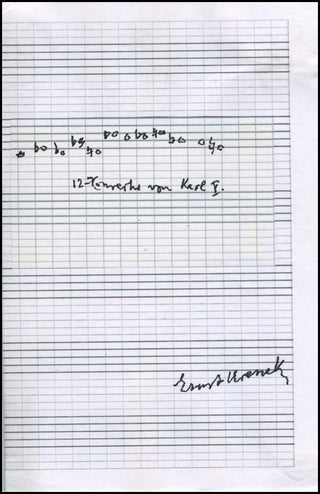 12-Tonreihe von Karl V.
Ernst Krenek